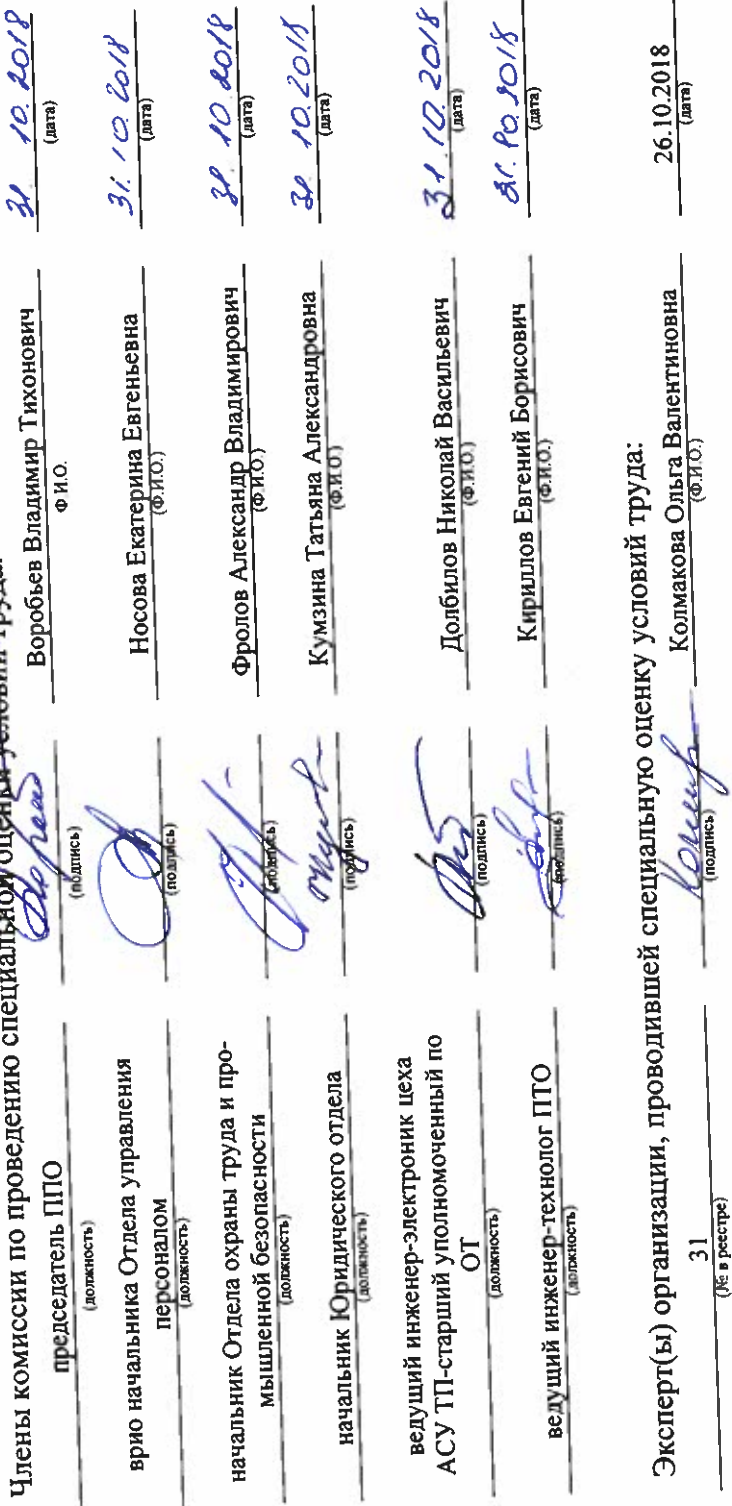 Члены комиссии по проведению специальной оценки условий труда:
председатель ППО Воробьев Владимир Тихонович 31.10.2018
(должность) (подпись) Ф И.О. (дата)
врио начальника Отдела управления
персоналом Носова Екатерина Евгеньевна 31.10.2018
(должность) (подпись) (Ф.И.О.) (дата)
начальник Отдела охраны труда и про-
мышленной безопасности Фролов Александр Владимирович 31.10.2018
(должность) (подпись) (Ф.И.О.) (дата)
начальник Юридического отдела Кумзина Татьяна Александровна 31.10.2018
(должность) (подпись) (Ф.И.О.) (дата)
ведущий инженер-электроник цеха
АСУ ТП-старший уполномоченный по
ОТ Долбилов Николай Васильевич 31.10.2018
(должность) (подпись) (Ф.И.О.) (дата)
ведущий инженер-технолог ПТО Кириллов Евгений Борисович
(должность) (подпись) (Ф.И.О.) (дата)
Эксперт(ы) организации, проводившей специальную оценку условий труда:
31 Колмакова Ольга Валентиновна 26.10.2018
(№ в реестре) (подпись) (Ф.И.О.) (дата)